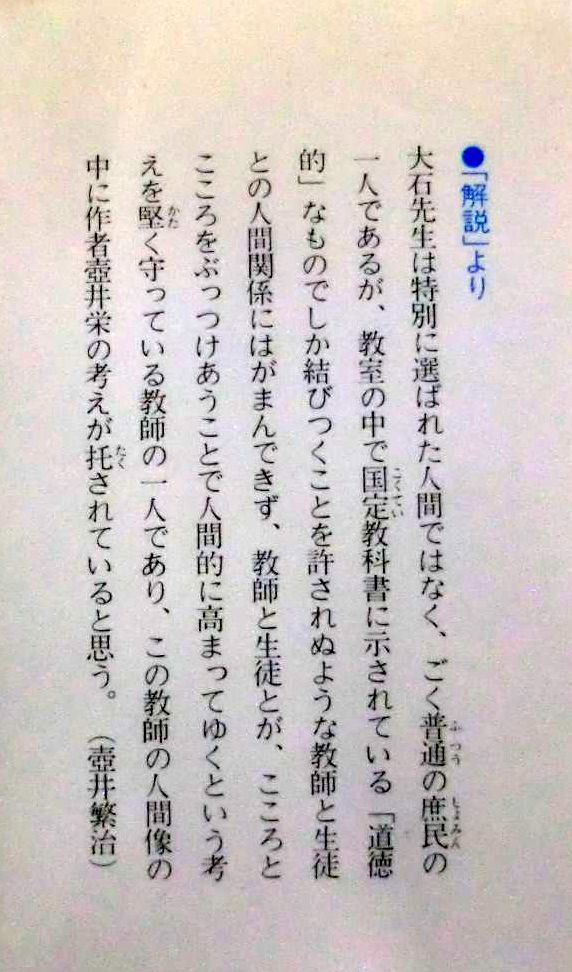 ●「解説」より
大石先生は特別に選ばれた人間ではなく、ごく普通の庶民の
一人であるが、教室の中で国定教科書に示されている「道徳
的」なものでしか結びつくことを許されぬような教師と生徒
との人間関係にはがまんできず、教師と生徒とが、こころと
こころをぶっつけあうことで人間的に高まってゆくという考
えを堅く守っている教師の一人であり、この教師の人間像の
中に作者壺井栄の考えが托されていると思う。（壺井繁治）